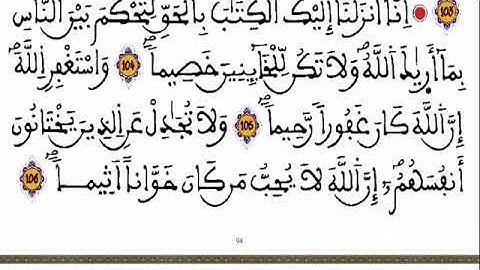 103 إِنَّا أَنزَلْنَا إِلَيْكَ الْكِتَٰبَ بِالْحَقِّ لِتَحْكُمَ بَيْنَ النَّاسِ
بِمَا أَرَيٰكَ اَللَّهُ وَلَا تَكُن لِّلْخَآئِنِينَ خَصِيماً 104 وَاسْتَغْفِرِ اِللَّهَ
إِنَّ اَللَّهَ كَانَ غَفُوراً رَّحِيماً 105 وَلَا تُجَٰدِلْ عَنِ اِلذِينَ يَخْتَانُونَ
أَنفُسَهُمُۥٓ إِنَّ اَللَّهَ لَا يُحِبُّ مَن كَانَ خَوَّاناً أَثِيماً 106
94